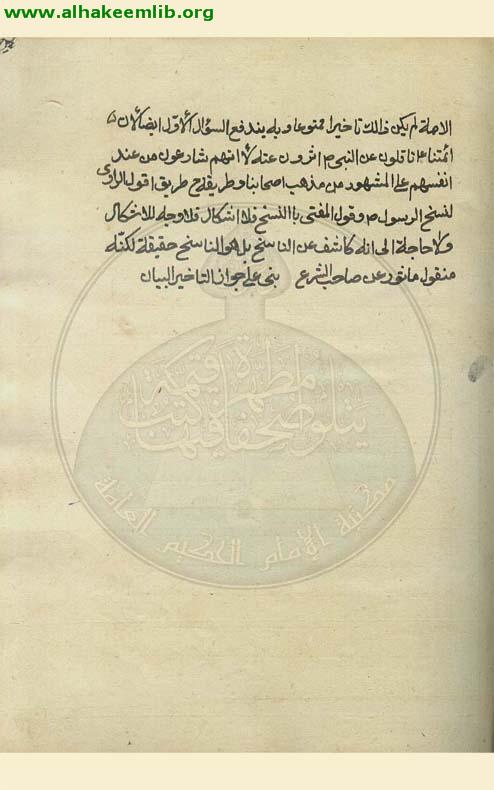 www.alhakeemlib.org
الاصلة لم يكن ذالك تاخيرا ممنوعا وبه يندفع السؤال الاول ايضا لان
ائمتنا ناقلون عن النبي ص اثرون عنه لا انهم شارعون من عند
انفسهم على المشهور من مذهب اصحابنا وطريق اقول الراوى
لنسخ الرسول ص وقول المفتى بالنسخ فلا اشكال فلا وجه للاخكال
ولا حاجة الى انه كاشف عن الناسخ بل هو الناسخ حقيقة لكنه
منقول ماثور عن صاحب الشرع بنى على جواز التاخير البيان
يتلو صحفا مطهرة فيها كتب قيمة
مكتبة الإمام الحكيم العامة